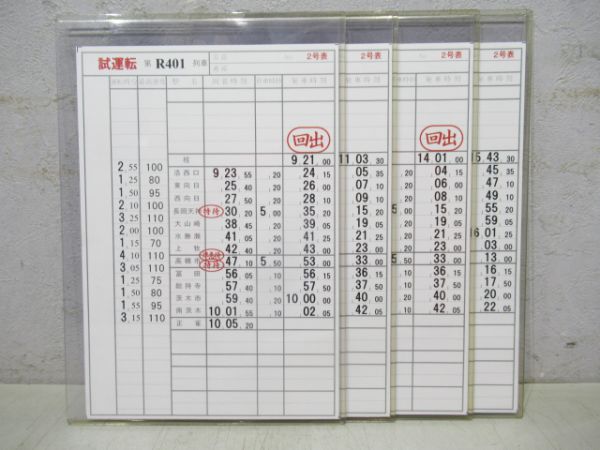 試運転 第 R401 列車 2号表
2号表
2号表
2号表
回出
回出
桂 9 21 00
2 55 100 洛西口 9 23 55 20 24 15
1 25 80 東向日 25 40 20 26 00
1 50 95 西向日 27 50 20 28 10
2 10 80 長岡天神 特待 30 20 5 00 35 20
3 25 110 大山崎 38 45 20 39 05
2 00 100 水無瀬 41 05 20 41 25
1 15 70 上牧 42 40 20 43 00
4 10 110 高槻市 特待 47 10 5 50 53 00
3 05 110 富田 56 05 10 56 15
1 25 50 総持寺 57 40 10 57 50
1 50 80 茨木市 59 40 20 10 00 00
1 55 95 南茨木 10 01 55 10 02 05
3 15 110 正雀 10 05 20
11 03 30
05 35
07 10
09 10
15 20
19 05
21 25
23 00
33 00
36 15
37 50
40 00
42 05
14 01 00
20 04 15
20 06 00
20 08 10
00 15 20
20 19 05
20 21 25
20 23 00
50 33 00
10 36 15
10 37 50
20 40 00
10 42 05
15 43 30
45 35
47 10
49 10
55 20
59 05
16 01 25
03 00
13 00
16 15
17 50
20 00
22 05